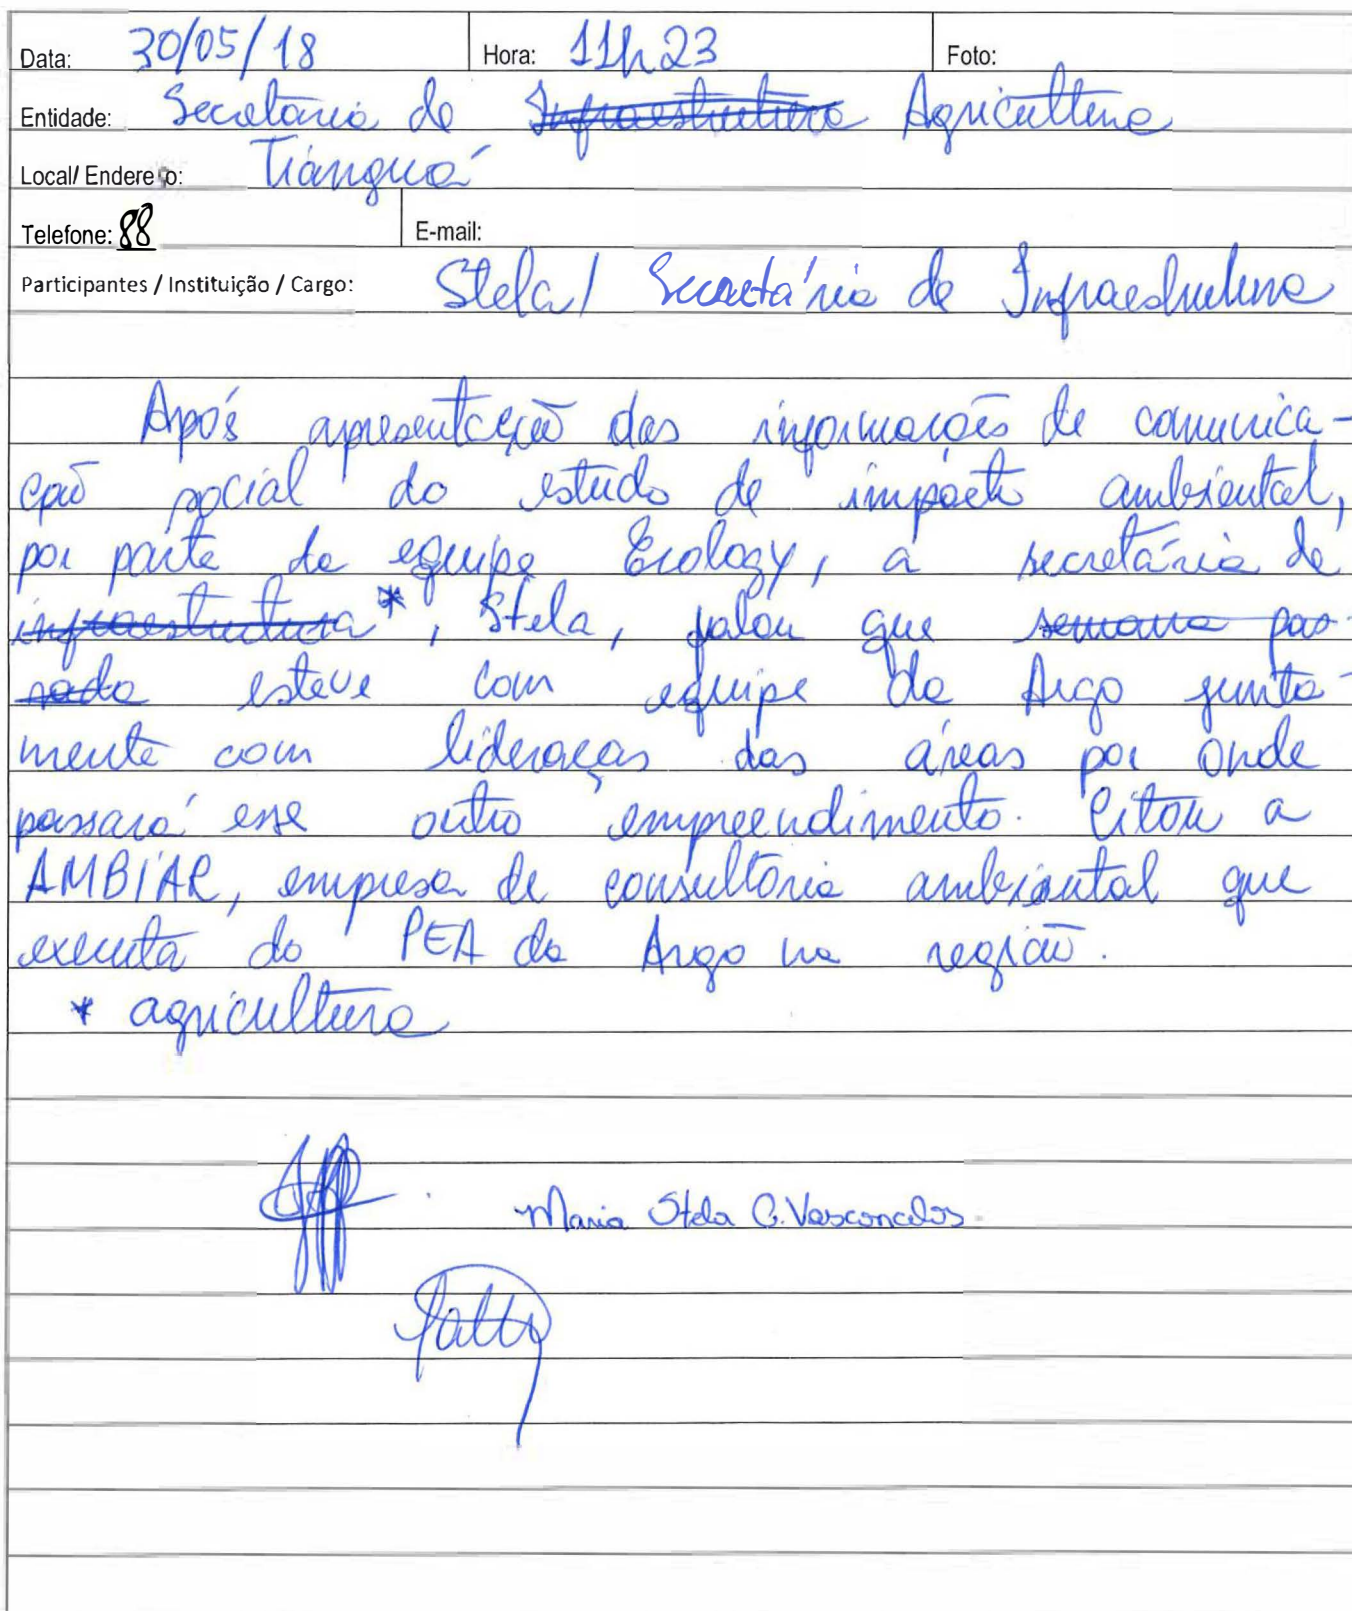 Data: 30/05/18 Hora: 11h23 Foto:
Entidade: Secretaria de Infraestrutura Agricultura
Local/ Endereço: Tianguá
Telefone: 88 E-mail:
Participantes / Instituição / Cargo: Stela / Secretária de Infraestrutura
Após apresentação das informações de comunica-
ção social do estudo de impacto ambiental,
por parte da equipe Ecology, a secretária de
infraestrutura*, Stela, falou que semana pas-
sada esteve com equipe da Argo junta-
mente com lideraças das áreas por onde
passará esse outro empreendimento. Citou a
AMBIAR, empresa de consultoria ambiental que
executa do PEA da Argo na região.
* agricultura
Maria Stela C. Vasconcelos